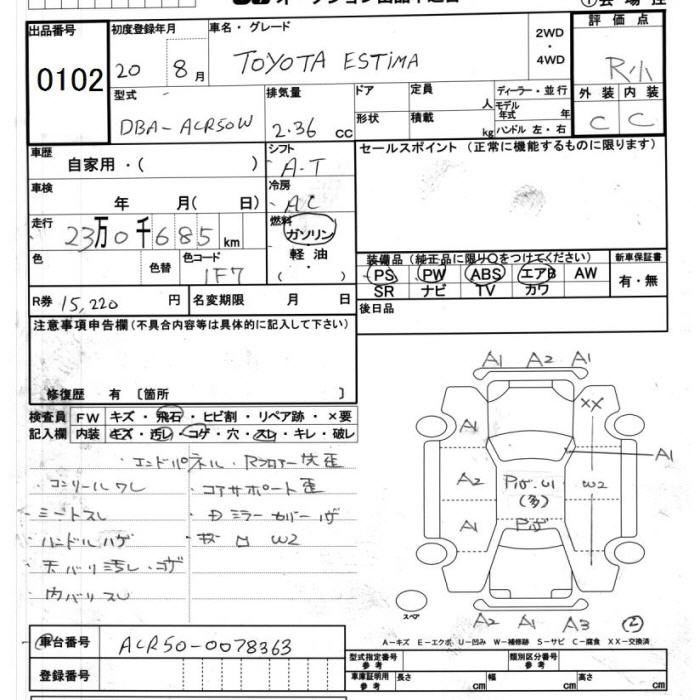 出品番号 初度登録年月 車名・グレード 2WD ・ 4WD 評価点
0102 20 8月 TOYOTA ESTIMA R小
型式 排気量 ドア 定員 人 ディーラー・並行 外装 内装
DBA-ACR50W 2.36 cc 形状 積載 kg モデル年式 年 ハンドル 左・右 C C
車歴 自家用・( ) シフト A-T セールスポイント (正常に機能するものに限ります)
車検 年 月( 日) 冷房 AC
走行 23万0千685km 燃料 ガソリン 軽油 ( ・ )
色 色替 色コード 1F7
装備品 (純正品に限り○をつけてください) 新車保証書
PS PW ABS エアB AW 有・無
SR ナビ TV カワ
R券 15,220円 名変期限 月 日 後日品
注意事項申告欄(不具合内容等は具体的に記入して下さい)
修復歴 有 〔箇所 〕
検査員 FW キズ・飛石・ヒビ割・リペア跡・×要
記入欄 内装 キズ・汚レ・コゲ・穴・スレ・キレ・破レ
エンドパネル・Rフロアー
コアサポート歪
シートスレ
ハンドルハゲ W2
天バリ汚レ・コゲ
内バリスレ
A1 A2 A1
XX
A1
A1
A2 W2
(多)
A1
スペア
A2 A1 A3 ②
A-キズ E-エクボ U-凹み W-補修跡 S-サビ C-腐食 XX-交換済
車台番号 ACR50-0078363
登録番号
型式指定番号 参考 類別区分番号 参考
車庫証明用 参考 長さ cm 幅 cm 高さ cm